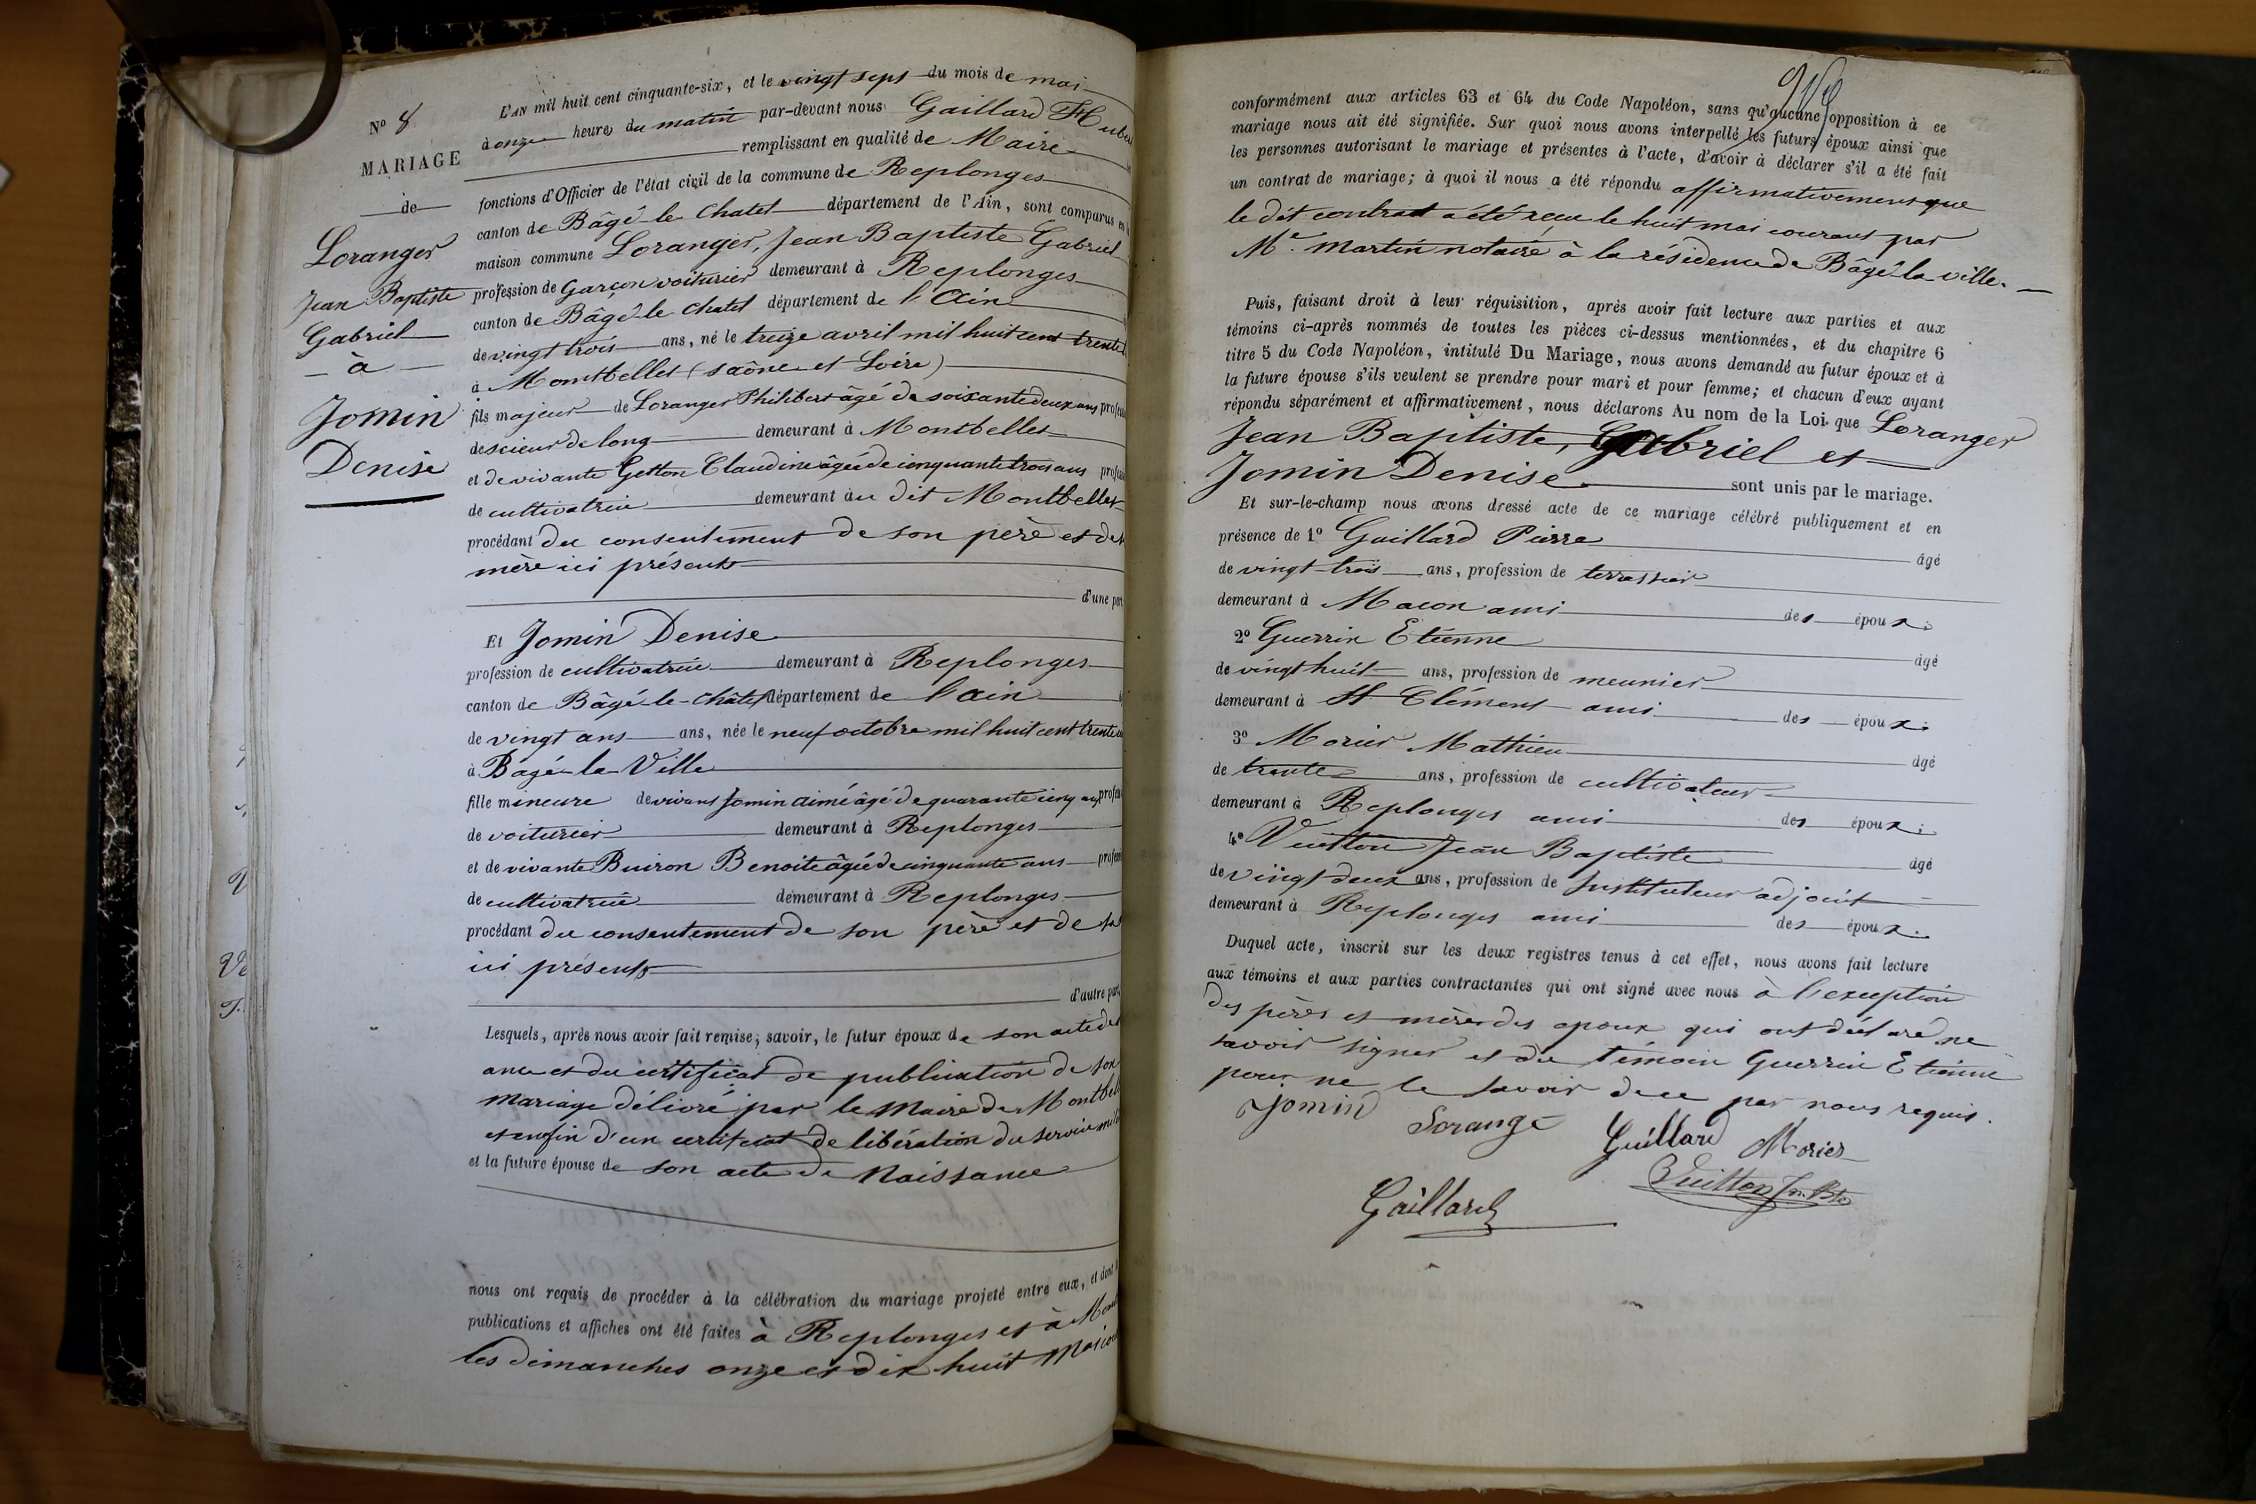 N° 8
MARIAGE
de
Loranger
Jean Baptiste
Gabriel
à
Jomin
Denise
L'AN mil huit cent cinquante-six, et le vingt sept du mois de mai
à onze heures du matin par-devant nous Gaillard
remplissant en qualité de Maire
fonctions d'Officier de l'état civil de la commune de Replonges
canton de Bâgé le Chatel département de l'Ain, sont comparus en
maison commune Loranger, Jean Baptiste Gabriel
profession de Garçon voiturier demeurant à Replonges
canton de Bâgé-le Chatel département de l'Ain
de vingt trois ans, né le treize avril mil huit cent trente
à Montbellet (Saône et Loire)
fils majeur de Loranger Philibert âgé de soixante deux ans
de scieur de long demeurant à Montbellet
et de vivante Getton Claudine âgée de cinquante trois ans
de cultivatrice demeurant au dit Montbellet
procédant du consentement de son père et de
mère ici présents
d'une part
Et Jomin Denise
profession de cultivatrice demeurant à Replonges
canton de Bâgé-le-Châtel département de l'ain
de vingt ans ans, née le neuf octobre mil huit cent trente
à Bagé-la-Ville
fille mineure de vivant Jomin Aimé âgé de quarante cinq ans
de voiturier demeurant à Replonges
et de vivante Buiron Benoite âgée de cinquante ans
de cultivatrice demeurant à Replonges
procédant du consentement de son père et de sa
ici présents
d'autre part
Lesquels, après nous avoir fait remise; savoir, le futur époux de son acte de
ance et du certificat de publication de son
mariage délivré par le Maire de
et enfin d'un certificat de libération du service
et la future épouse de son acte de Naissance
nous ont requis de procéder à la célébration du mariage projeté entre eux, et dont
publications et affiches ont été faites à Replonges et à
les dimanches onze et dix huit Mai
conformément aux articles 63 et 64 du Code Napoléon, sans qu'aucune opposition à ce
mariage nous ait été signifiée. Sur quoi nous avons interpellé les futurs époux ainsi que
les personnes autorisant le mariage et présentes à l'acte, d'avoir à déclarer s'il a été fait
un contrat de mariage; à quoi il nous a été répondu affirmativement que
le dit contrat a été reçu le huit mai courant par
Me. Martin notaire à la résidence de Bâgé-la-ville.
Puis, faisant droit à leur réquisition, après avoir fait lecture aux parties et aux
témoins ci-après nommés de toutes les pièces ci-dessus mentionnées, et du chapitre 6
titre 5 du Code Napoléon, intitulé Du Mariage, nous avons demandé au futur époux et à
la future épouse s'ils veulent se prendre pour mari et pour femme; et chacun d'eux ayant
répondu séparément et affirmativement, nous déclarons Au nom de la Loi que Loranger
Jean Baptiste, Gabriel et
Jomin Denise sont unis par le mariage.
Et sur-le-champ nous avons dressé acte de ce mariage célébré publiquement et en
présence de 1° Gaillard Pierre âgé
de vingt-trois ans, profession de terrassier
demeurant à Macon ami des époux.
2° Guerrin Etienne âgé
de vingt huit ans, profession de meunier
demeurant à St Clément ami des époux.
3° Morier Mathieu âgé
de trente ans, profession de cultivateur
demeurant à Replonges ami des époux.
4° Vuitton Jean Baptiste âgé
de vingt deux ans, profession de Instituteur adjoint
demeurant à Replonges ami des époux.
Duquel acte, inscrit sur les deux registres tenus à cet effet, nous avons fait lecture
aux témoins et aux parties contractantes qui ont signé avec nous à l'exception
des pères et mères des époux qui ont déclaré ne
savoir signer et du témoin Guerrin Etienne
pour ne le savoir de ce par nous requis.
Jomin Lorange Guillard Morier
Gaillard Vuitton Jn. Bte